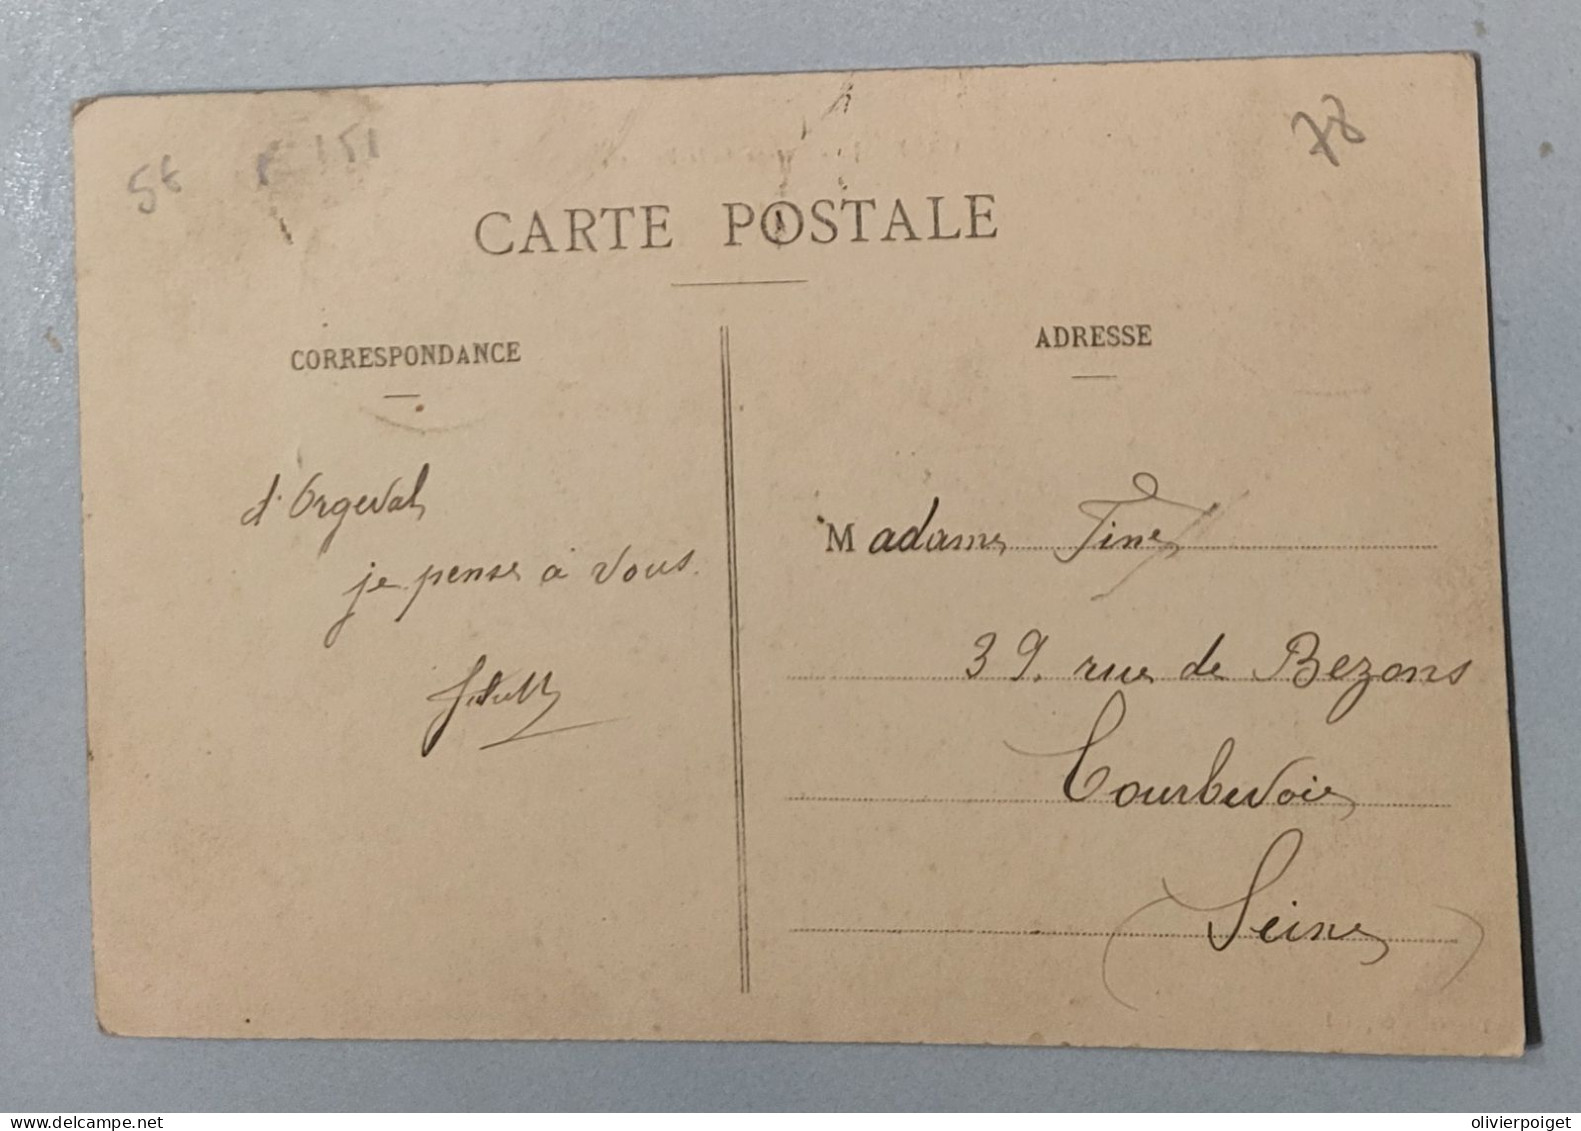 5€
151
78
CARTE POSTALE
CORRESPONDANCE
d'Orgeval
je pense à vous.
ADRESSE
Madame Fine
39, rue de Bezons
Courbevoie
(Seine)
www.delcampe.net
olivierpoiget